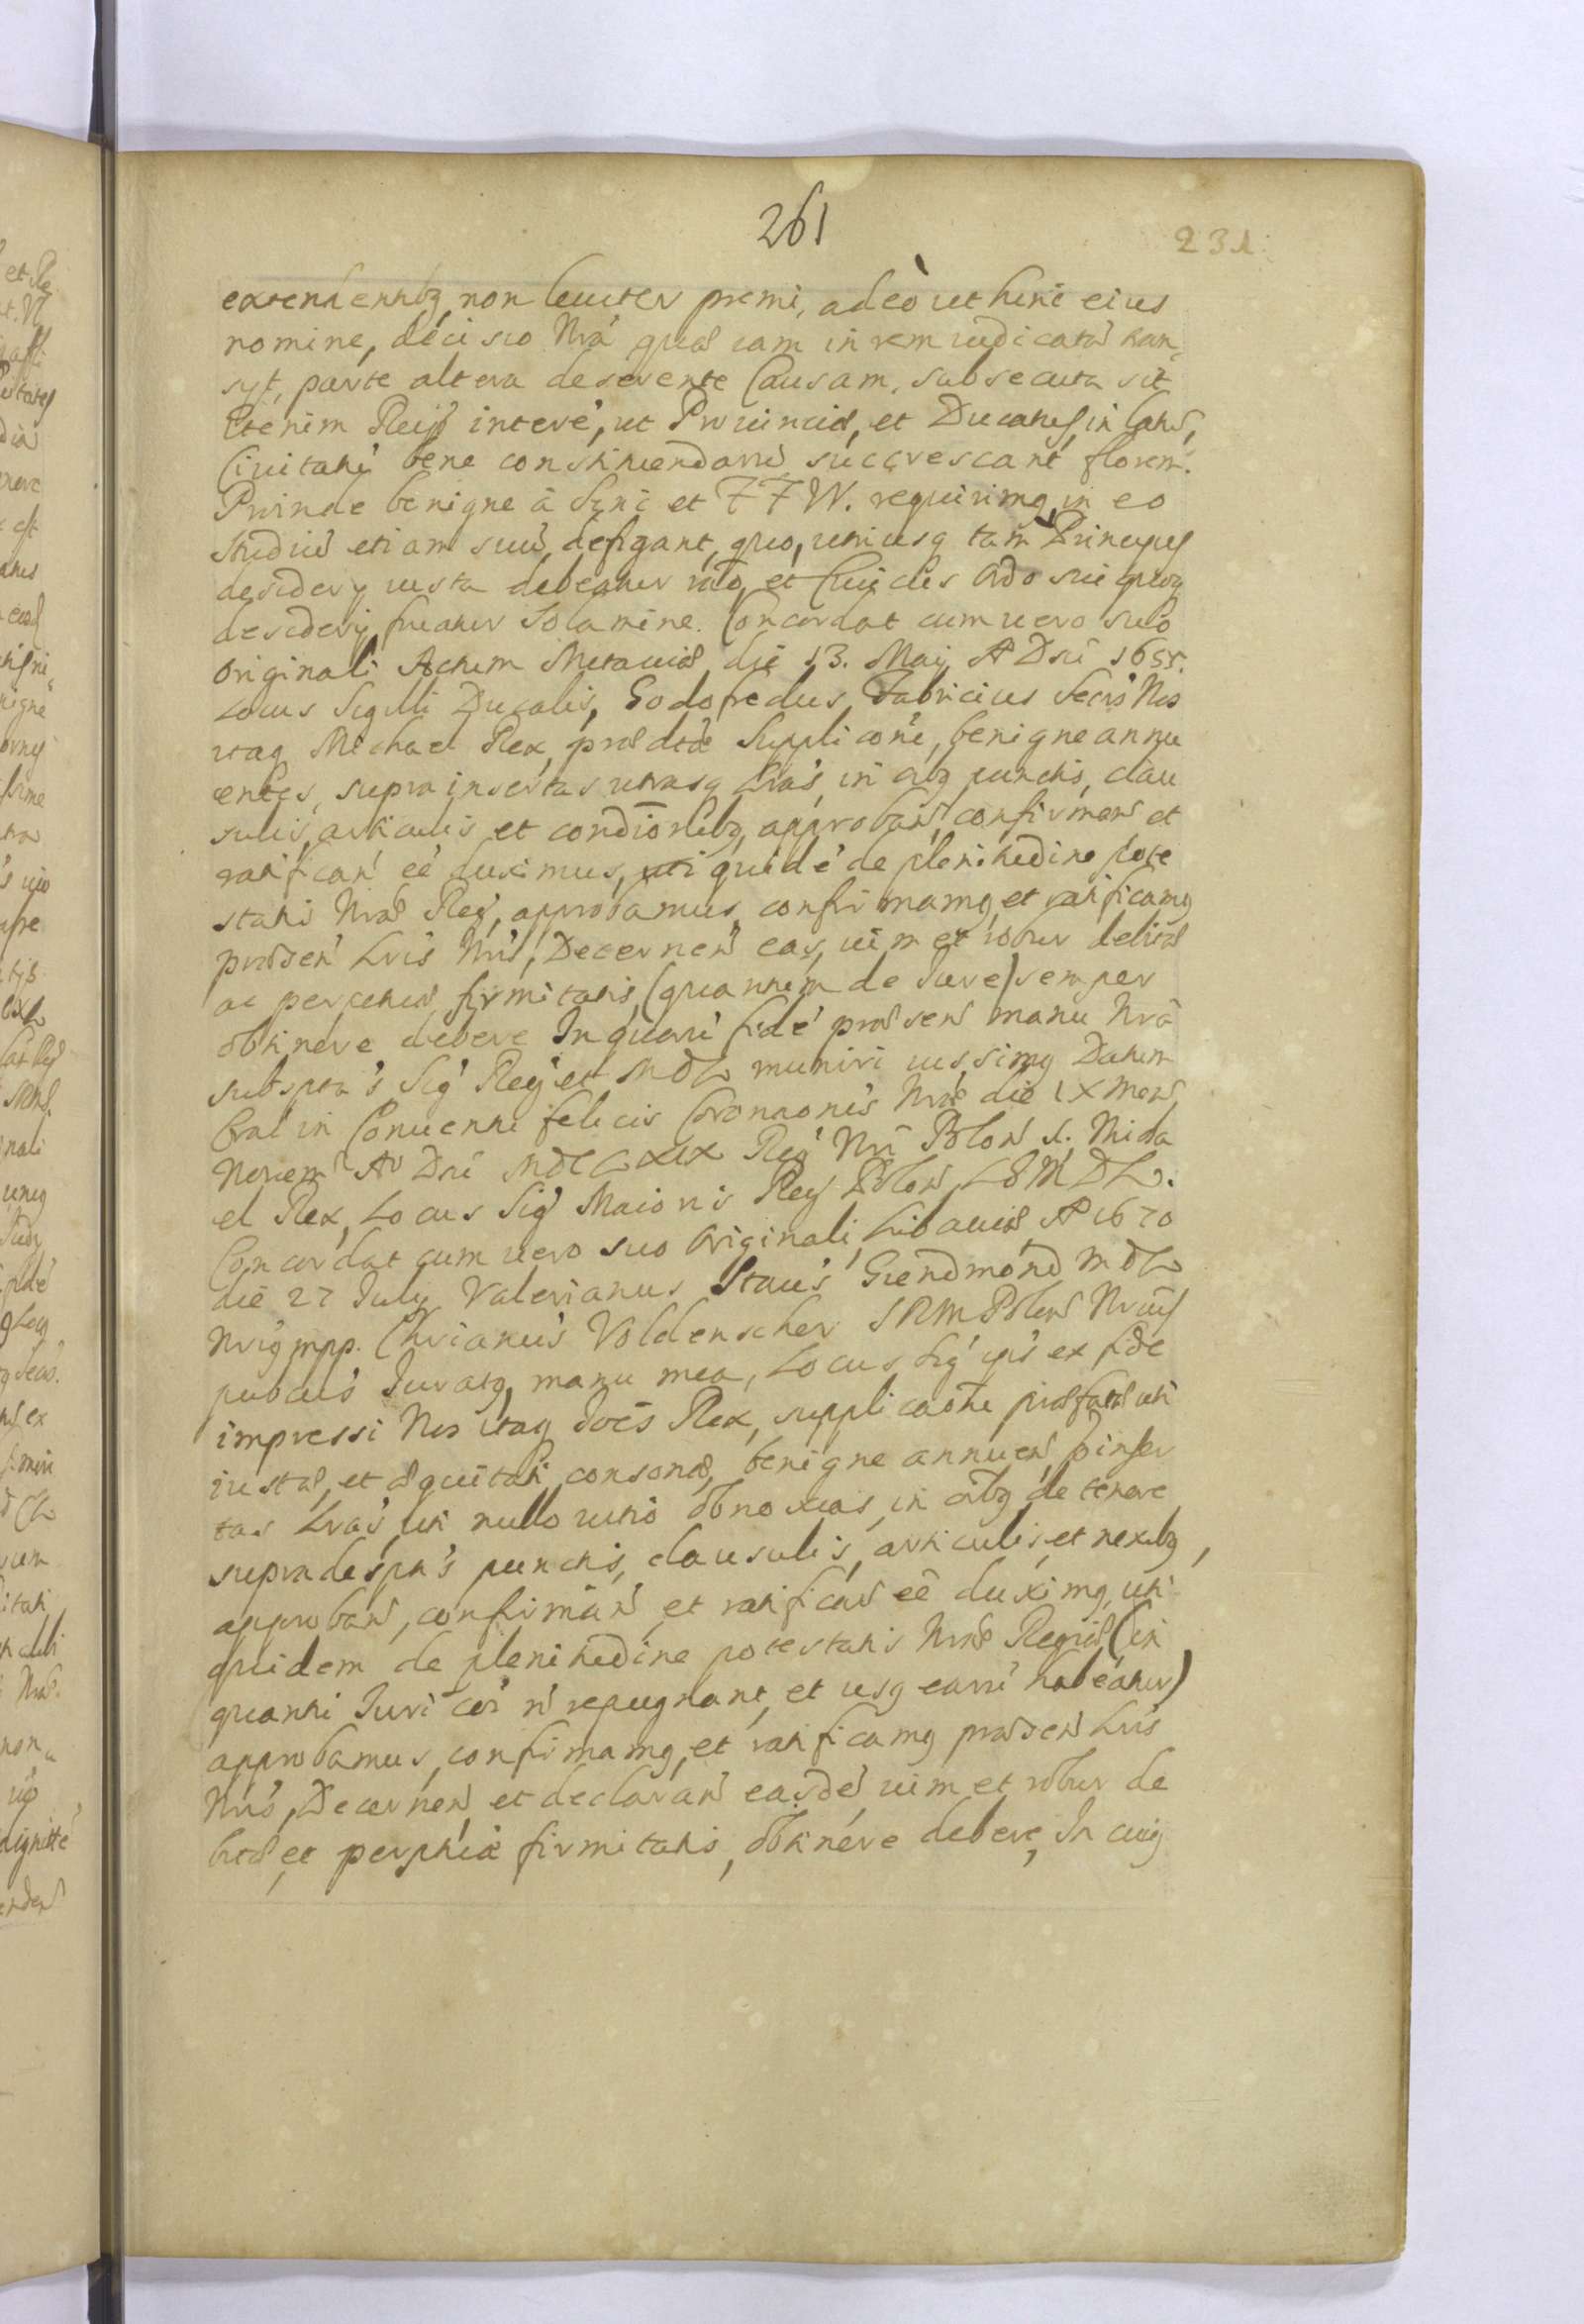 261
231
extendentibz, non leuiter premi, adeò ut hinc eius
nomine, decisio Nrã quæ iam in rem iudicatã tran,
syt, parte altera deserente Causam, subsecuta sit
Etenim Reip interẽ, ut Prouinciæ, et Ducatus in
Ciuitatũ bene constituendarũ succrescant florem.
Proinde benigne à Sync et FFW. requirimg, in eo
studiũ etiam suũ, defigant, quo, utriusq tam Principis
desiderÿ iusta debeatur rõ, et Ciuilis Ordo sui quoqz
desiderÿ, fruatur solamine. Concordat cum uero suo
Originali Actum Mitauiæ die 13. Maij Aº Dnĩ 1655.
Locus Sigilli Ducalis, Godofredus Fabricius Secrõ Nos
itaq Michael Rex, prædtæ Supplicõni, benigne annu
entes, supra insertas utrasq Lras, in oibz punctis, clau
sulis, articulis et condionibz, approban, confirman et
ratifican eẽ duximus, uti quidẽ de plenitudine pote
statis Nræ Reg, approbamus, confirmamg, et ratificamg
præsen Lris Nris, Decernen eas, uim et robur debitæ
ac perpetuæ firmitatis, (quantum de Iure) semper
obtinere debere In quarũ fidẽ præsen manu Nrã
subscptas Sig Reg et MDL muniri iussimg Datum
Crac in Conuentu felicis Coronaõnis Nræ die IX mens
Nouem Aº Dnĩ MDCLXIX Reg Nri Polon I. Micha
el Rex, Locus Sig Maioris Reg Polon LSMDL.
Concordat cum uero suo Originali, Libauiæ Aº 1670
die 27 July Valerianus Stanis MDL
Nrig mpp. Chrianus Voldenscher SRMPolon Nriũs
publcus Iuratg, manu mea, Locus Sig ipis ex fide
impressi Nos itaq Ioẽs Rex, supplicaõni præfatæ uti
iustæ, et æquitati consonæ, benigne annuen, pinser
tas Lras, uti nullo uitio obnoxias, in oibz de tenore
supradesptis punctis, clausulis, articulis, et nexibz,
approban, confirmãn, et ratifican eẽ duximg, uti
quidem de plenitudine potestatis Nræ Regiæ (in
quantu Iuri cõi ñ repugnant, et usq earũ habeatur)
approbamus, confirmamg, et ratificamg præsen Lris
Nris, Decernen et declaran easdẽ uim et robur de
bitæ, et perphuæ firmitatis, obtinere debere, In cuig